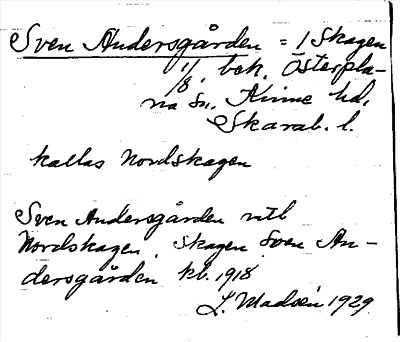 Sven Andersgården = 1 Skagen
1/8, bek. Österpla-
na Sn, Kinne hd,
Skarab. l.
kallas Nordskagen
Sven Andersgården utl
Nordskagen. Skagen Sven An-
dersgården kb. 1918
L. Madsén 1929